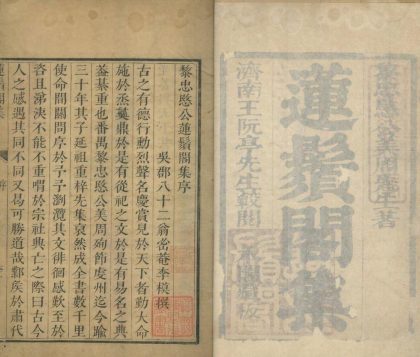 黎忠愍公美周先生著
蓮鬚閣集
濟南王阮亭先生鼓閱
黎忠愍公蓮鬚閣集序
吳郡八十二翁當菴李模撰
古之有德行動烈聲名慶賞見於天下者勤大命
施於烝彝鼎於是有從祀之文於是有易名之典
葢綦重也番禺黎忠愍公美周殉節虔州迄今踰
三十年其子延祖重梓先集裒然成全書數千里
使命間關問序於予予瀏覽其文徘徊感歎至於
咨且涕泱不能不重喟於宗社興亡之際曰古今
人之感遇其同不同又曷可勝道哉鄴矦於肅代
蓮鬚閣集
序